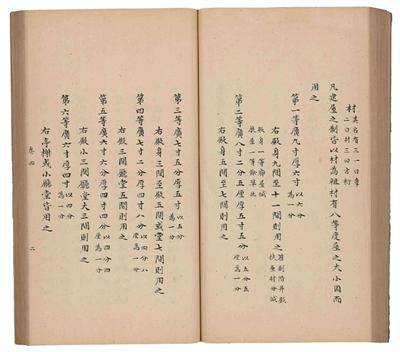 材其名有三一曰章
二曰材三曰方桁
凡建屋之制皆以材為祖材有八等度屋之大小因而
用之
第一等廣九寸厚六寸以六分
為一分
右殿身九間至十一間則用之若副階并殿
挾屋材分減
殿身一等廊屋減
挾屋一等餘準此
第二等廣八寸二分五厘厚五寸五分以五分五
厘為一分
右殿身五間至七間則用之
第三等廣七寸五分厚五寸以五分
為一分
右殿身三間至殿五間或堂七間則用之
第四等廣七寸二分厚四寸八分以四分八
厘為一分
右殿三間廳堂五間則用之
第五等廣六寸六分厚四寸四分以四分四
厘為一分
右殿小三間廳堂大三間則用之
第六等廣六寸厚四寸以四分
為一分
右亭榭或小廳堂皆用之
卷四
二